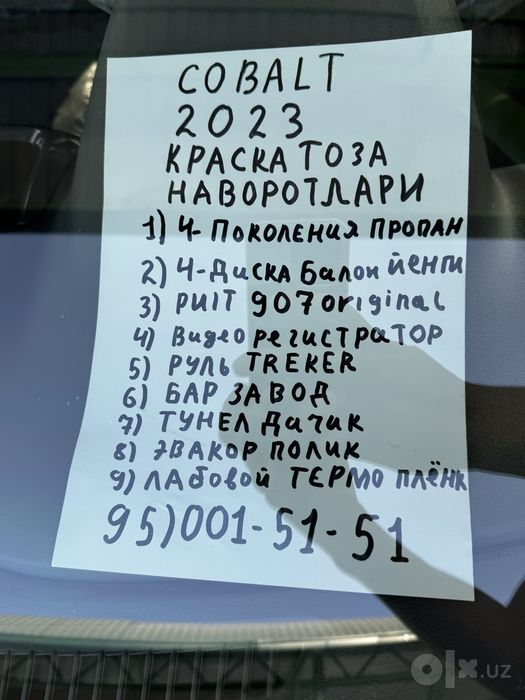 COBALT
2023
КРАСКА ТОЗА
НАВОРОТЛАРИ
1) 4-ПОКОЛЕНИЯ ПРОПАН
2) 4-ДИСКА БАЛОН ЙЕНГИ
3) РИІТ 907 original
4) Видео регистратор
5) РУЛЬ TREKER
6) БАР ЗАВОД
7) ТУНЕЛ ДАЧИК
8) ЭВАКОР ПОЛИК
9) ЛАБОВОЙ ТЕРМО ПЛЁНК
95)001-51-51
olx.uz